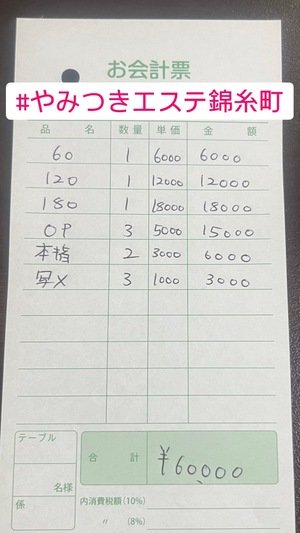 お会計票
#やみつきエステ錦糸町
品名 数量 単価 金額
60 1 6000 6000
120 1 12000 12000
180 1 18000 18000
OP 3 5000 15000
本指 2 3000 6000
写メ 3 1000 3000
テーブル
名様
係
合計 ¥60,000
内消費税額(10%)
〃 (8%)